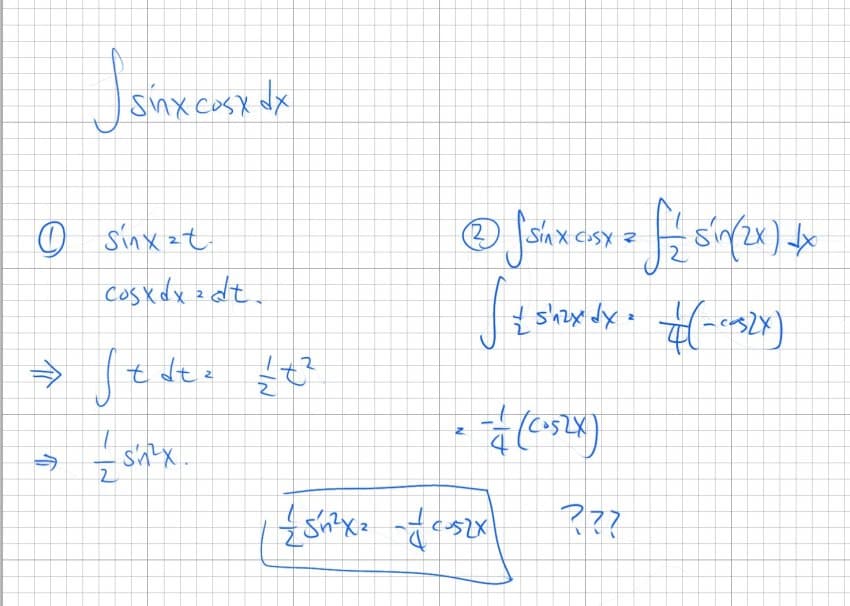 ∫ sinx cosx dx
① sinx = t.
cosxdx = dt.
⇒ ∫ t dt = 1/2 t²
⇒ 1/2 sin²x.
② ∫ sinx cosx = ∫ 1/2 sin(2x) dx
∫ 1/2 sin2x dx = 1/4 (-cos2x)
= -1/4 (cos2x)
1/2 sin²x = -1/4 cos2x ???